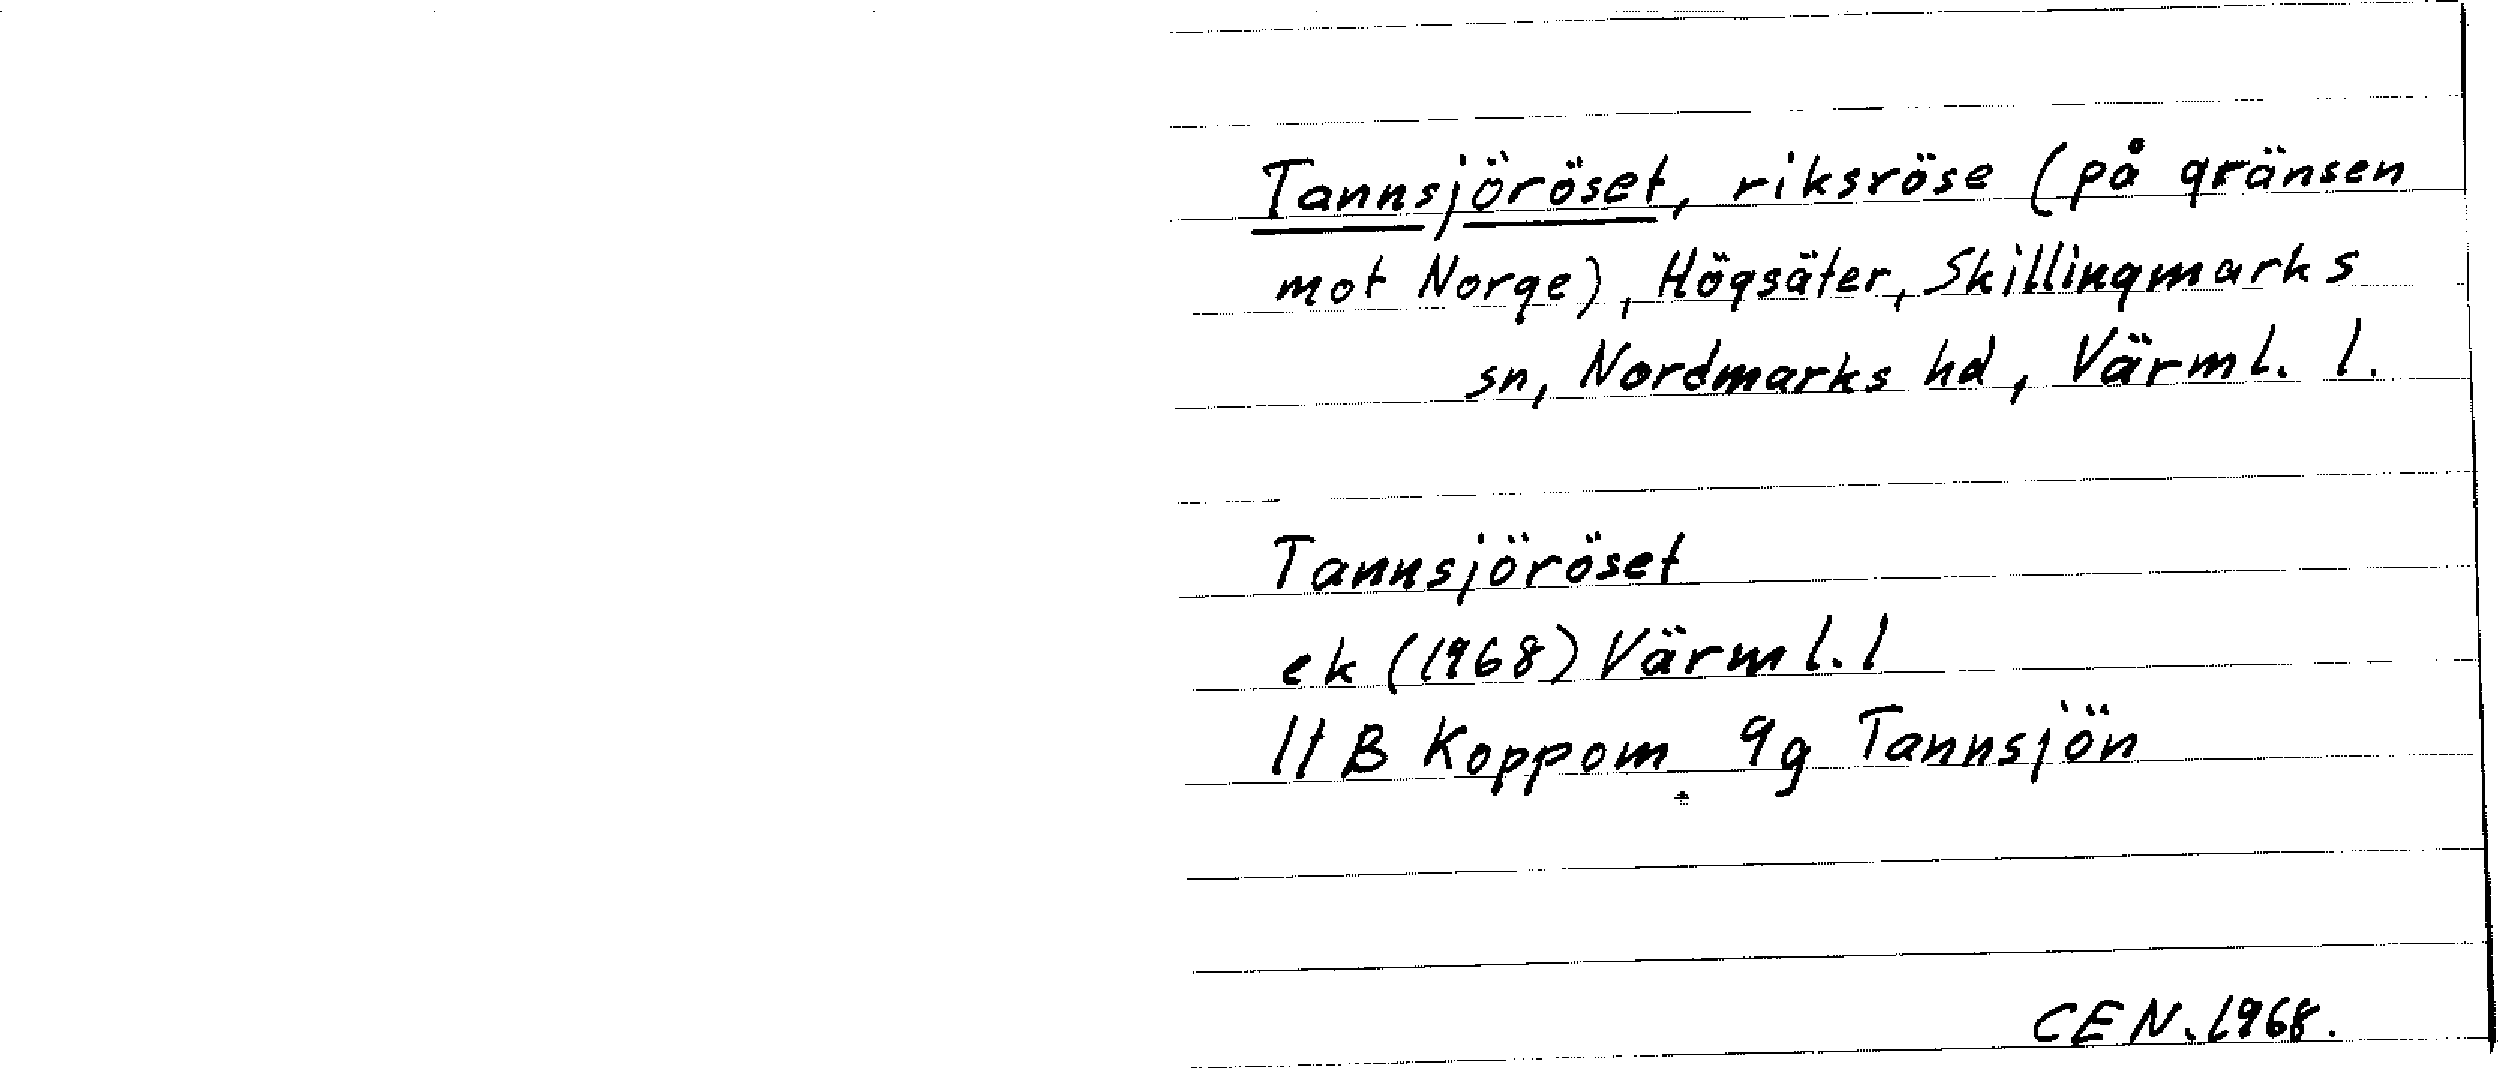 Tannsjöröset, riksröse (på gränsen
mot Norge), Högsäter, Skillingmarks
sn, Nordmarks hd, Värml. l.
Tannsjöröset
ek (1968) Värml. l
11 B Koppom 9g Tannsjön
CEN. 1968.